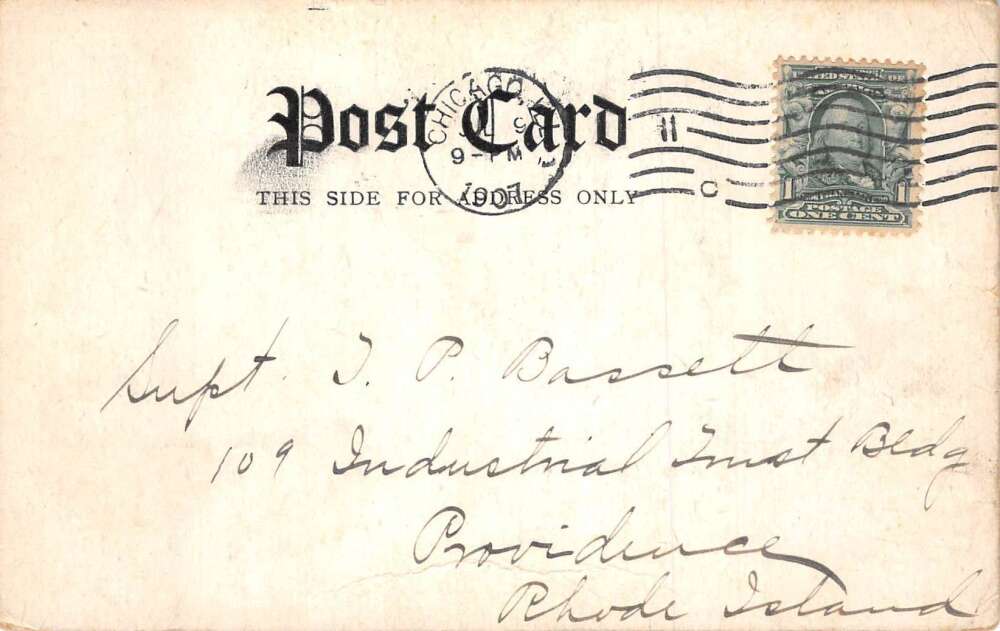 Post Card
THIS SIDE FOR ADDRESS ONLY
CHICAGO, ILL
9-PM
1907
11
C
UNITED STATES OF
AMERICA
1 1
POSTAGE
ONE CENT
Supt. T. P. Bassett
109 Industrial Trust Bldg
Providence
Rhode Island